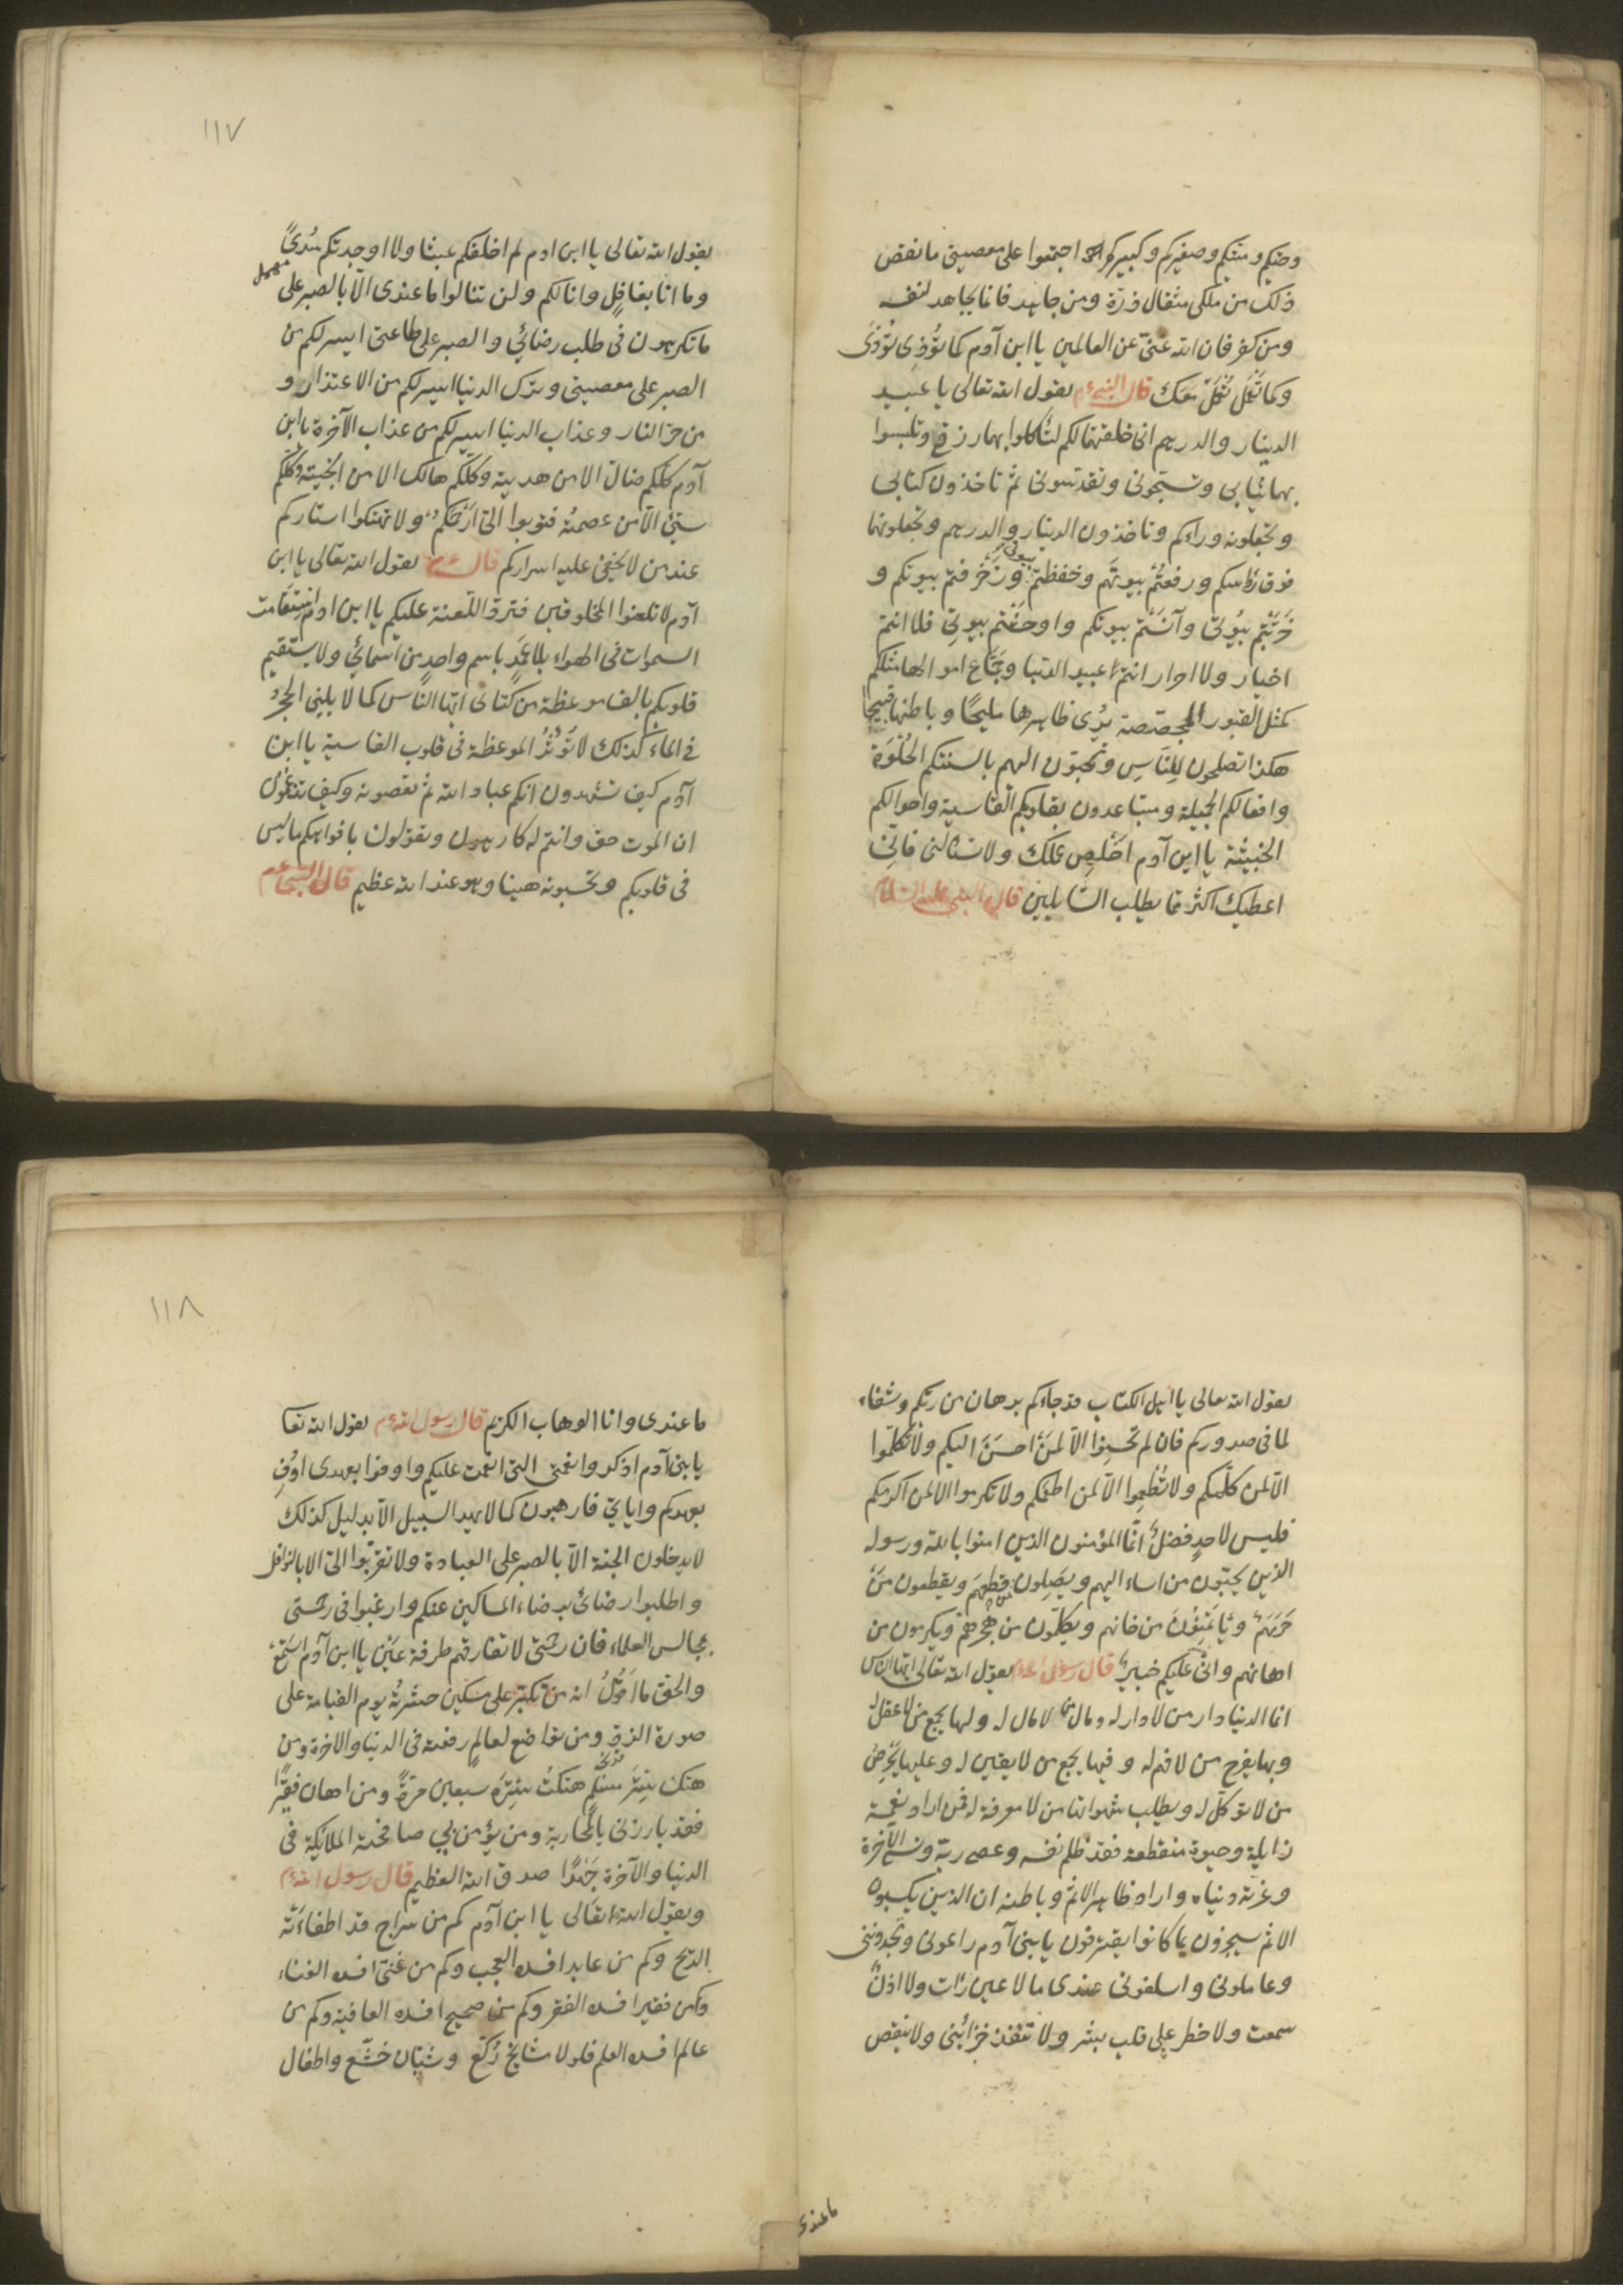 وحيكم وميتكم وصغيركم وكبيركم اجتمعوا على معصيتى ما نقص
ذلك من ملكى مثقال ذرّة ومن جاهد فانما يجاهد لنفسه
ومن كفر فان الله غنىّ عن العالمين يا ابن آدم كما تُؤذِى تُؤذَى
وكما تَعْمَل يُعْمَلُ بَمَك قال النبى ءم يقول الله تعالى يا عبيد
الدينار والدرهم انى خلقتهما لكم لتأكلوا بهما رزقى وتلبسوا
بهما ثيابى وتسبّحونى وتقدّسونى ثم تأخذون كتابى
وتجعلونه وراءكم وتأخذون الدينار والدرهم وتجعلونهما
فوق رؤاسكم ورفعتُم بيوتَهم وخفظتم بيوتى وزخرفتم بيوتكم و
خرّبتم بيُوتى وآنستم بيوتكم واوحشتم بيوتى فلا انتم
اخيار ولا احرار انتم عبيد الدنيا وجمّاع اموالها مثلكم
كمثل القبور المجصّصة يُرى ظاهرها مليحًا وباطنها قبيحا
هكذا تصلحون لِلنّاسِ وتحبّون اليهم بالسنتكم الحُلْوَة
وافعالكم الجميلة ومتباعدون بقلوبكم القاسية واحوالكم
الخبيثة يا ابن آدم اَخْلِص عملك ولا تسألنى فانّى
اعطيك اكثر مما يطلب السّايلين قال النبى عليه السلام
١١٧
يقول الله تعالى يا ابن ادم لم اخلقكم عبثا ولا اوجدتكم سُدىً
مهمل
وما انا بغافلٍ وانا لكم ولن تنالوا ما عندى الّا بالصبر على
ما تكرهون فى طلب رضائى والصبر على طاعتى ايسر لكم من
الصبر على معصيتى وترك الدنيا ايسر لكم من الاعتذار و
من حرّ النار وعذاب الدنيا ايسر لكم من عذاب الآخرة يا ابن
آدم كلّكم ضالّ الا من هديته وكلّكم هالك الا من انجيته وكلّكم
سيّئ الّا من عصمتُه فتوبوا الىّ ارحمكم ولا تهتكوا استاركم
عند من لا يخفى عليه اسراركم قال ءم يقول الله تعالى يا ابن
آدم لا تلعنوا المخلوقين فترد اللّعنة عليكم يا ابن ادم استقامت
السموات فى الهواء بلا عَمَدٍ باسم واحدٍ من اسمائى ولا يستقيم
قلوبكم بالف موعظة من كتابى ايّها النّاس كما لا يلين الحجر
فى الماء كذلك لا تُؤثّرُ الموعظة فى قلوب القاسية يا ابن
آدم كيف تشهدون انكم عباد الله ثم تعصونه وكيف تدّعون
ان الموت حق وانتم له كارهون وتقولون بافواهكم ما ليس
فى قلوبكم وتحسبونه هينا وهو عند الله عظيم قال النبى ءم
يقول الله تعالى يا اهل الكتاب قد جاءكم برهان من ربّكم وشفاء
لما فى صدوركم فان لم تحسنوا الّا لمَن احسَنَ اليكم ولا تكلّموا
الّا لمن كلّمكم ولا تُطْعِموا الّا لمن اطعمكم ولا تكرموا الّا لمن اكرمكم
فليس لاحدٍ فضلٌ انّما المؤمنون الذين امنوا بالله ورسوله
الذين يحبّون من اساء اليهم ويَصِلون من قطعهم ويعطون مَن
حَرَمَهُم ويأتمنون من خانهم ويكلّمون من هجرهم ويكرمون من
اهانهم وانّى عليكم خبير قال رسول الله ءم يقول الله تعالى ايّها النّاس
انما الدنيا دار من لا دار له ومال من لا مال له ولها يجمع من لا عقل له
وبها يفرح من لا فهم له وفيها يجمع من لا يقين له وعليها يحرص
من لا توكّل له ويطلب شهواتها من لا معرفة له فمن اراد نعمة
زايلة وحيوة منقطعة فقد ظلم نفسه وعصى ربّه ونسى الآخرة
وغرّته دنياه واراد ظاهر الاثم وباطنه ان الذين يكسبون
الاثم سيجزون بما كانوا يقترفون يا بنى آدم راعونى وتجدوننى
وعاملونى واسلفونى عندى ما لا عين رأت ولا اذنٌ
سمعت ولا خطر على قلب بشر ولا تنفد خزائنى ولا ينقص
ما عندى
١١٨
ما عندى وانا الوهاب الكريم قال رسول الله ءم يقول الله تعا
يا بنى آدم اذكروا نعمتى التى انعمت عليكم واوفوا بعهدى اوُفِ
بعهدكم وايّاىَ فارهبون كما لا يهيد السبيل الّا بدليل كذلك
لا يدخلون الجنة الّا بالصبر على العبادة ولا تقرّبوا الىّ الا بالنوافل
واطلبوا رضائى برضاء المساكين عنكم وارغبوا فى رحمتى
بمجالس العلماء فان رحمتى لا تفارقهم طرفة عَيْن يا ابن آدم استمع
والحق ما اَقُولُ انه من تكبّر على مسكين حشرتُه يوم القيامة على
صورة الذر ومن تواضع لعالمٍ رفعته فى الدنيا والاخرة ومن
هتك سِتْرَ مسلم هتكتُ سِتْرَه سبعين مرّةً ومن اهان فقيرًا
فقد بارزنى بالمحاربة ومن يؤمن بى صافحته الملائكة فى
الدنيا والآخرة جَهْرًا صدق الله العظيم قال رسول الله ءم
ويقول الله تعالى يا ابن آدم كم من سراج قد اطفاءَته
الريح وكم من عابد افسده العجب وكم من غنىّ افسده الغناء
وكم من فقير افسده الفقر وكم من صحيح افسده العافية وكم من
عالم افسده العلم فلولا مشايخ رُكّع وشبّان خشّع واطفال